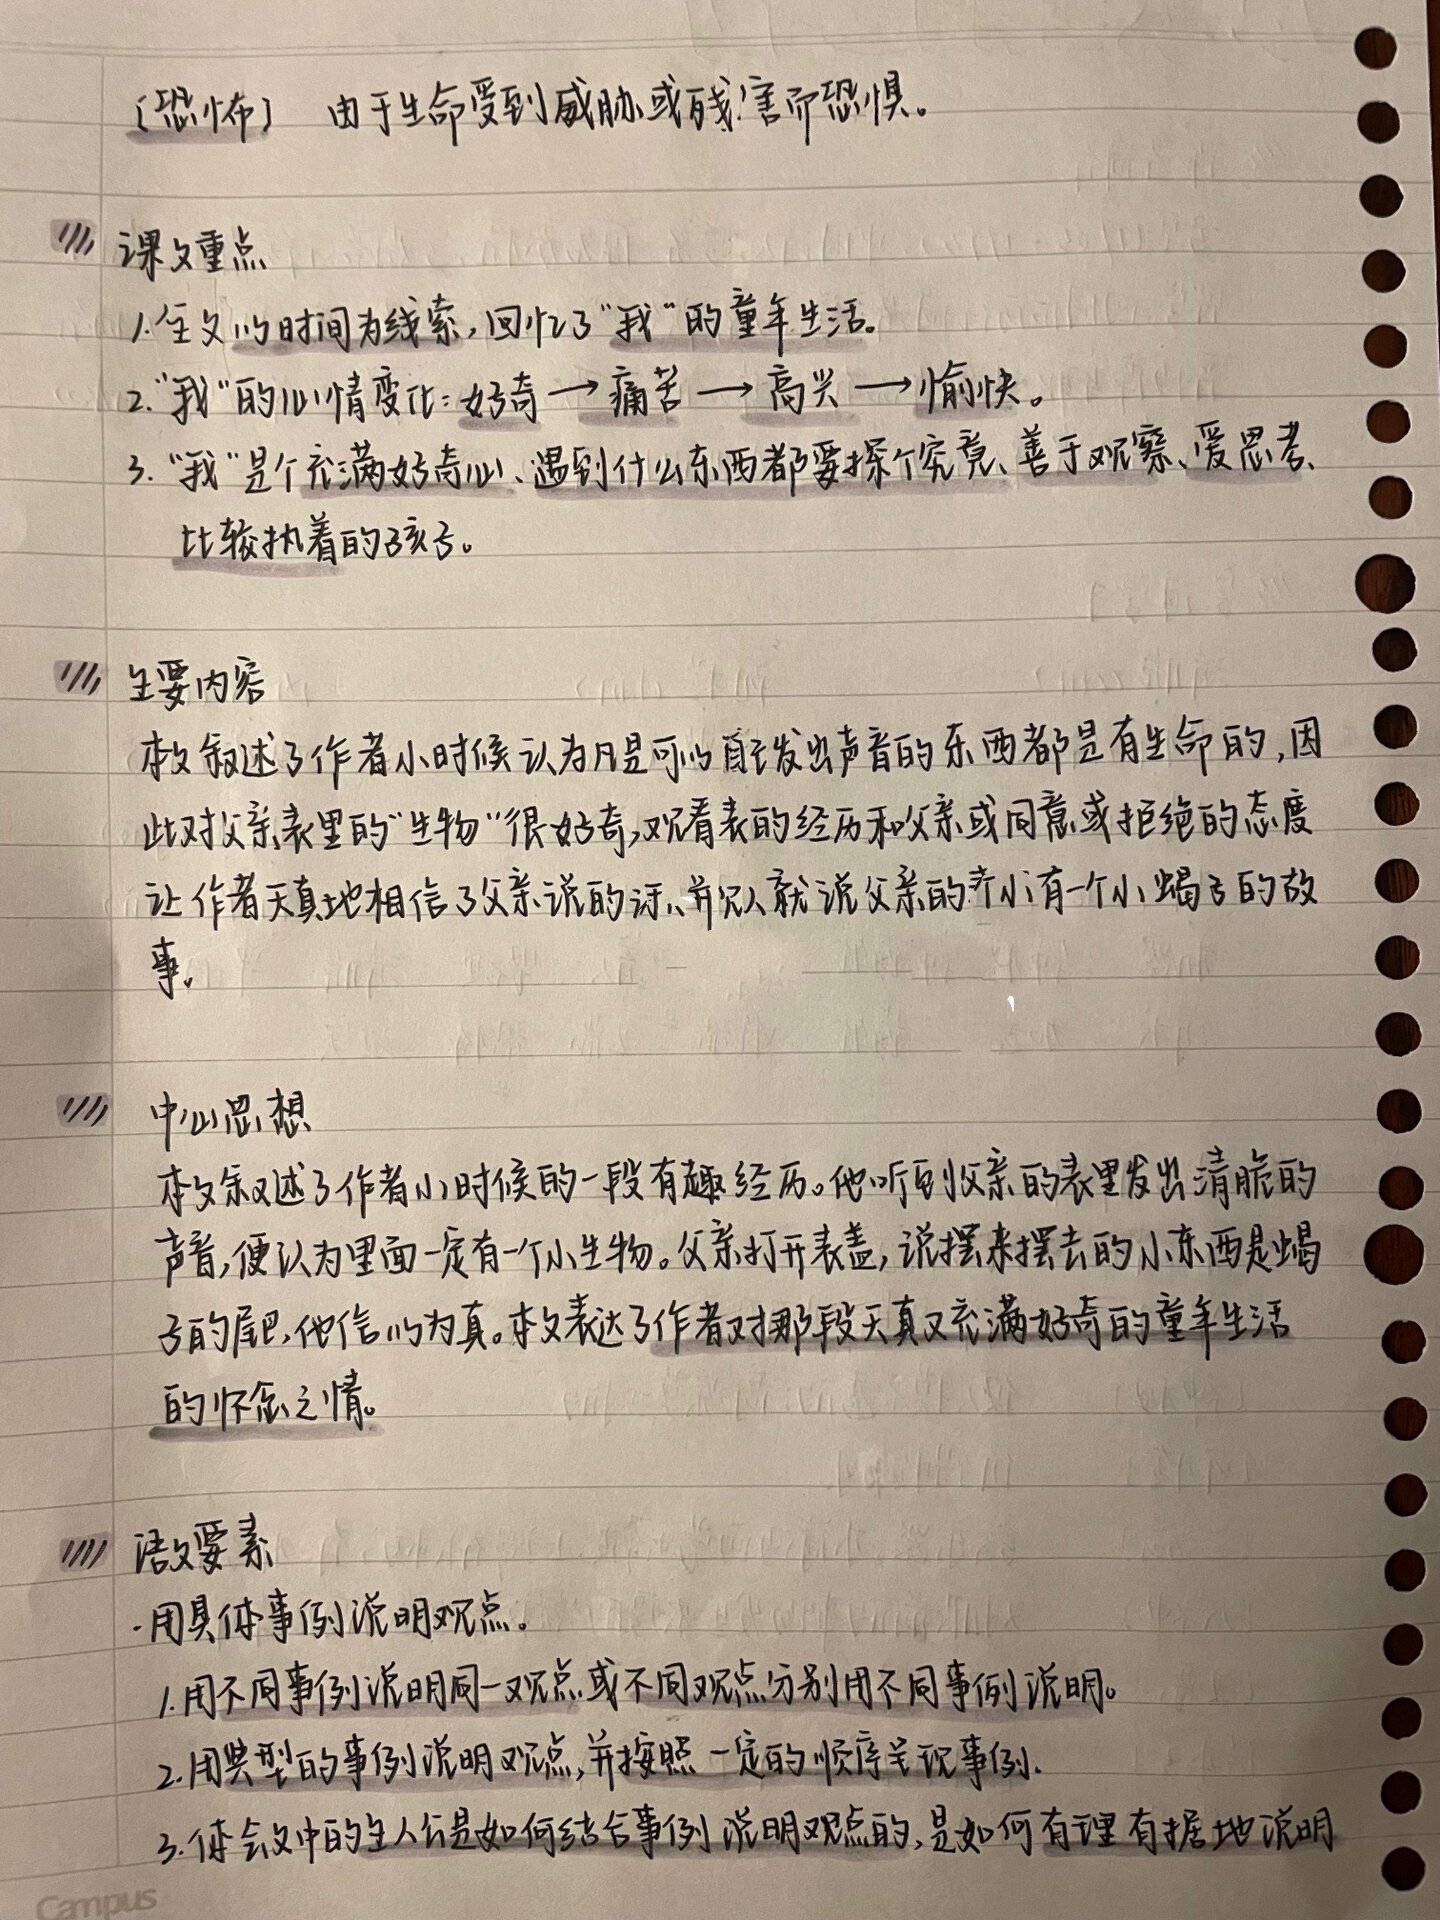 〔恐怖〕 由于生命受到威胁或残害而恐惧。
课文重点
1.全文以时间为线索,回忆了“我”的童年生活。
2.“我”的心情变化:好奇→痛苦→高兴→愉快。
3.“我”是个充满好奇心、遇到什么东西都要探个究竟、善于观察、爱思考、
比较执着的孩子。
主要内容
本文叙述了作者小时候认为凡是可以自主发出声音的东西都是有生命的,因
此对父亲表里的“生物”很好奇,观看表的经历和父亲或同意或拒绝的态度
让作者天真地相信了父亲说的话、并见人就说父亲的表里有一个小蝎子的故
事。
中心思想
本文叙述了作者小时候的一段有趣经历。他听到父亲的表里发出清脆的
声音,便认为里面一定有一个小生物。父亲打开表盖,说摆来摆去的小东西是蝎
子的尾巴,他信以为真。本文表达了作者对那段天真又充满好奇的童年生活
的怀念之情。
语文要素
·用具体事例说明观点。
1.用不同事例说明同一观点或不同观点分别用不同事例说明。
2.用典型的事例说明观点,并按照一定的顺序呈现事例.
3.体会文中的主人公是如何结合事例说明观点的,是如何有理有据地说明
Campus